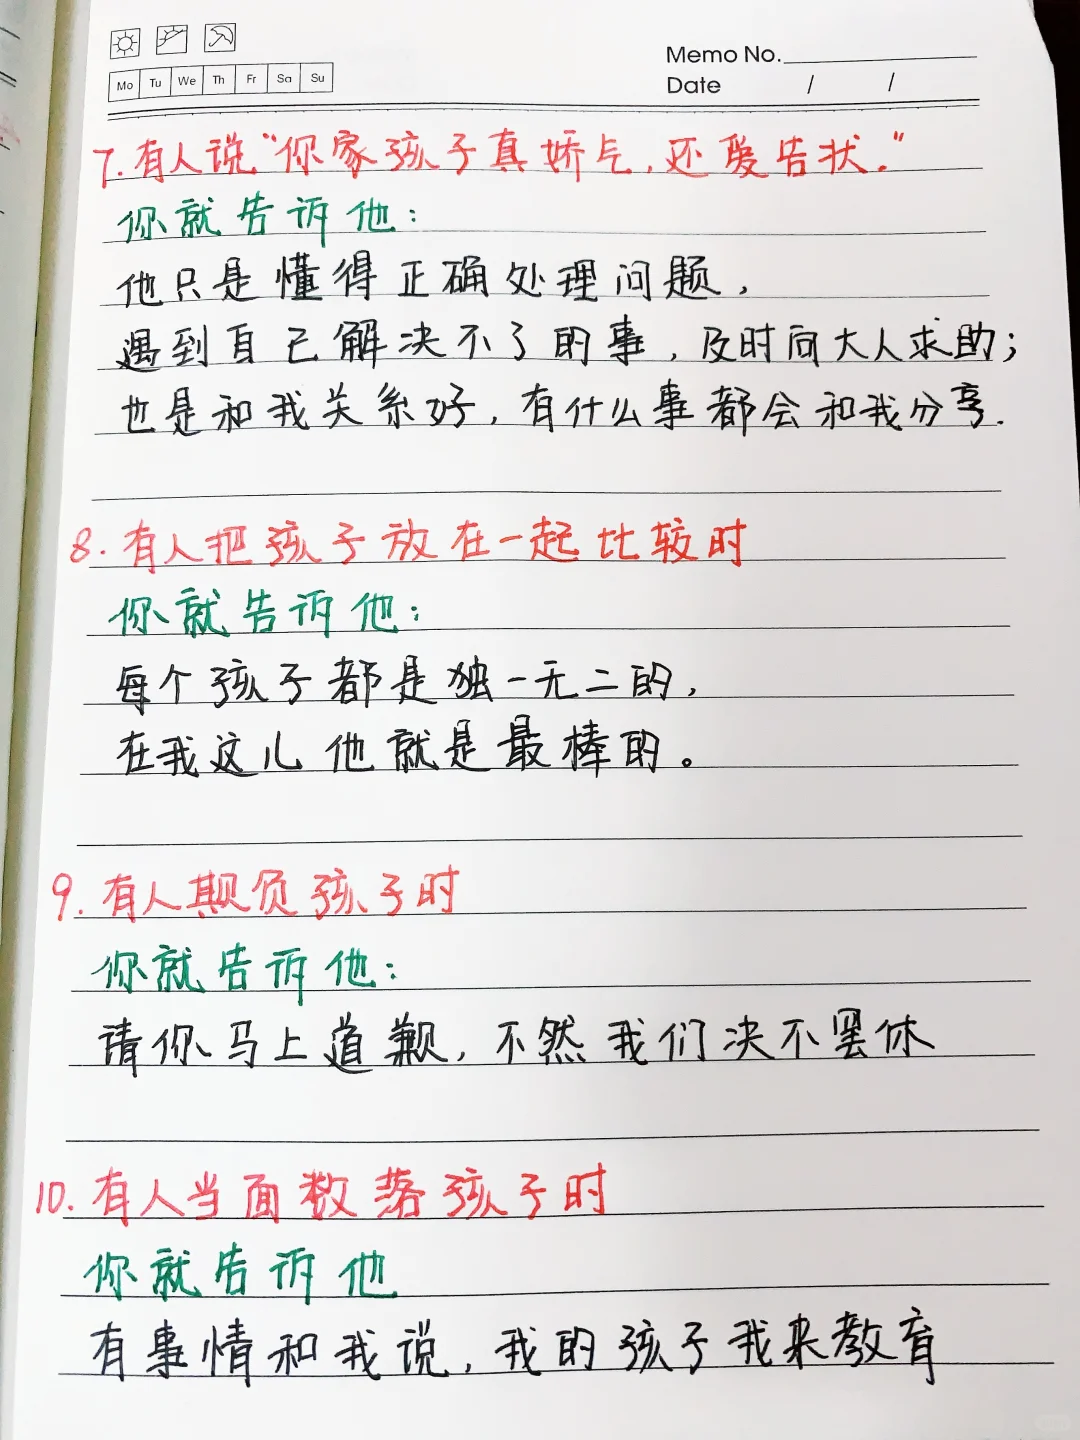 Memo No.
Mo Tu We Th Fr Sa Su
Date / /
7.有人说“你家孩子真娇气,还爱告状.”
你就告诉他:
他只是懂得正确处理问题,
遇到自己解决不了的事,及时向大人求助;
也是和我关系好,有什么事都会和我分享.
8.有人把孩子放在一起比较时
你就告诉他:
每个孩子都是独一无二的,
在我这儿他就是最棒的。
9.有人欺负孩子时
你就告诉他:
请你马上道歉,不然我们决不罢休
10.有人当面数落孩子时
你就告诉他
有事情和我说,我的孩子我来教育